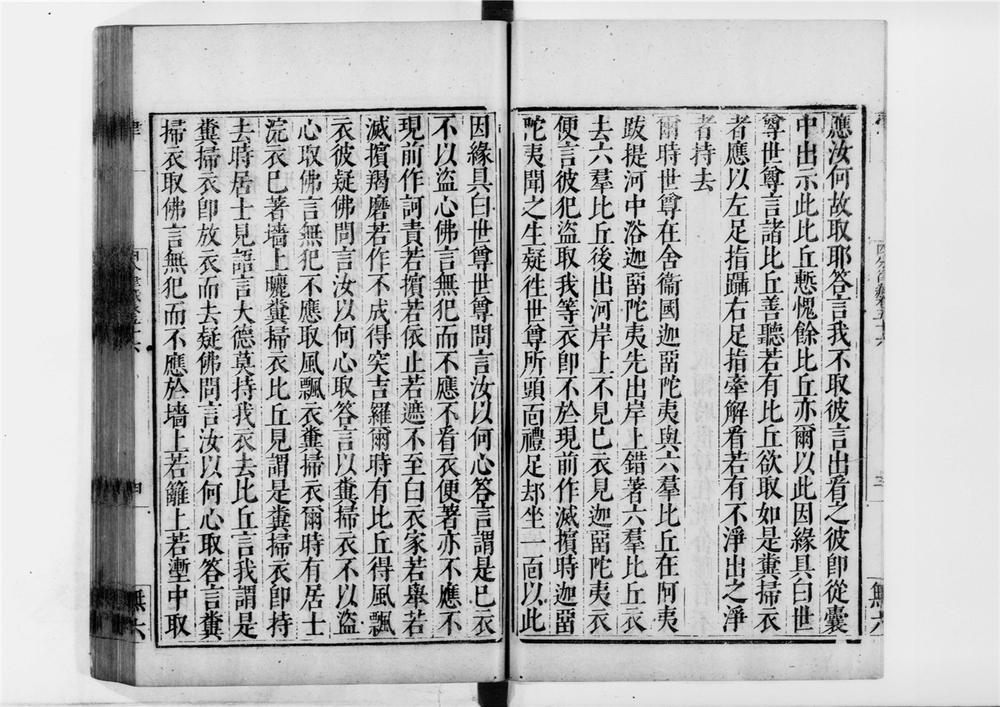 應汝何故取耶答言我不取彼言出看之彼卽從囊
中出示此比丘慙愧餘比丘亦爾以此因緣具白世
尊世尊言諸比丘善聽若有比丘欲取如是糞掃衣
者應以左足指躡右足指牽解看若有不淨出之淨
者持去
爾時世尊在舍衞國迦畱陀夷與六羣比丘在阿夷
跋提河中浴迦畱陀夷先出岸上錯著六羣比丘衣
去六羣比丘後出河岸上不見已衣見迦畱陀夷衣
便言彼犯盜取我等衣卽不於現前作滅擯時迦畱
陀夷聞之生疑往世尊所頭面禮足却坐一面以此
因緣具白世尊世尊問言汝以何心答言謂是已衣
不以盜心佛言無犯而不應不看衣便著亦不應不
現前作訶責若擯若依止若遮不至白衣家若舉若
滅擯羯磨若作不成得突吉羅爾時有比丘得風飄
衣彼疑佛問言汝以何心取答言以糞掃衣不以盜
心取佛言無犯不應取風飄衣糞掃衣爾時有居士
浣衣已著墻上曬糞掃衣比丘見謂是糞掃衣卽持
去時居士見語言大德莫持我衣去比丘言我謂是
糞掃衣卽放衣而去疑佛問言汝以何心取答言糞
掃衣取佛言無犯而不應於墻上若籬上若壍中取
無六